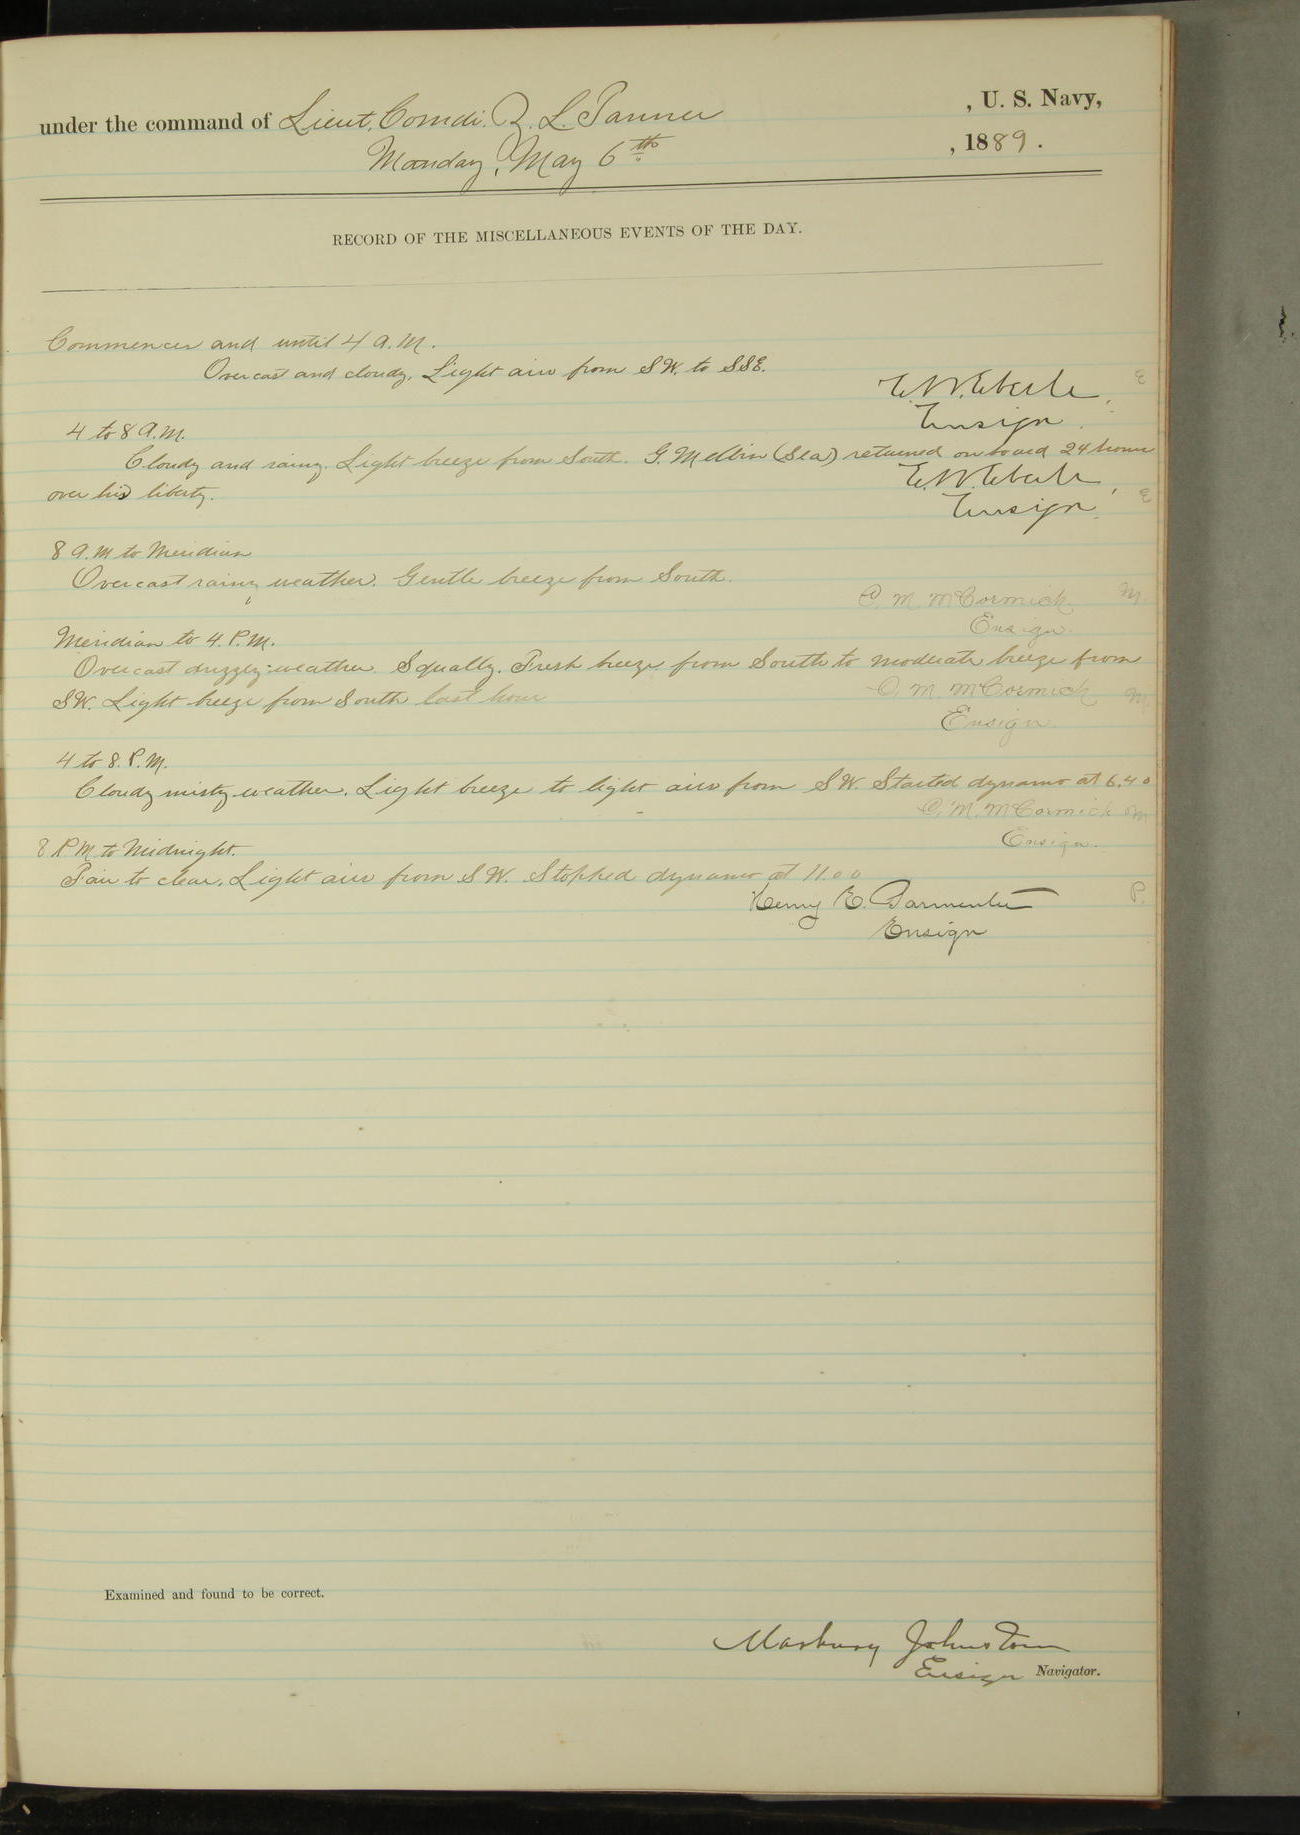 under the command of Lieut. Comdr. Z. L. Tanner, U. S. Navy,
Monday, May 6th, 1889.
RECORD OF THE MISCELLANEOUS EVENTS OF THE DAY.
Commences and until 4 A.M.
Overcast and cloudy. Light airs from SW. to SSE.
E. W. Eberle,
E
Ensign.
4 to 8 A.M.
Cloudy and rainy. Light breeze from South. G. (Sea) returned on board 24 hours
over his liberty.
E. W. Eberle,
Ensign.
E
8 A.M to Meridian
Overcast rainy weather. Gentle breeze from South.
C. M. McCormick
M.
Ensign.
Meridian to 4. P.M.
Overcast drizzly weather. Squally. Fresh breeze from South to moderate breeze from
SW. Light breeze from South last hour
C. M. McCormick
M.
Ensign.
4 to 8. P.M.
Cloudy misty weather. Light breeze to light airs from SW. Started dynamo at 6.40
C. M. McCormick
M
Ensign.
8 P M to Midnight.
Fair to clear. Light airs from SW. Stopped dynamo at 11.00
Henry E. Parmenter
P.
Ensign
Examined and found to be correct.
Marbury Johnston
Ensign Navigator.